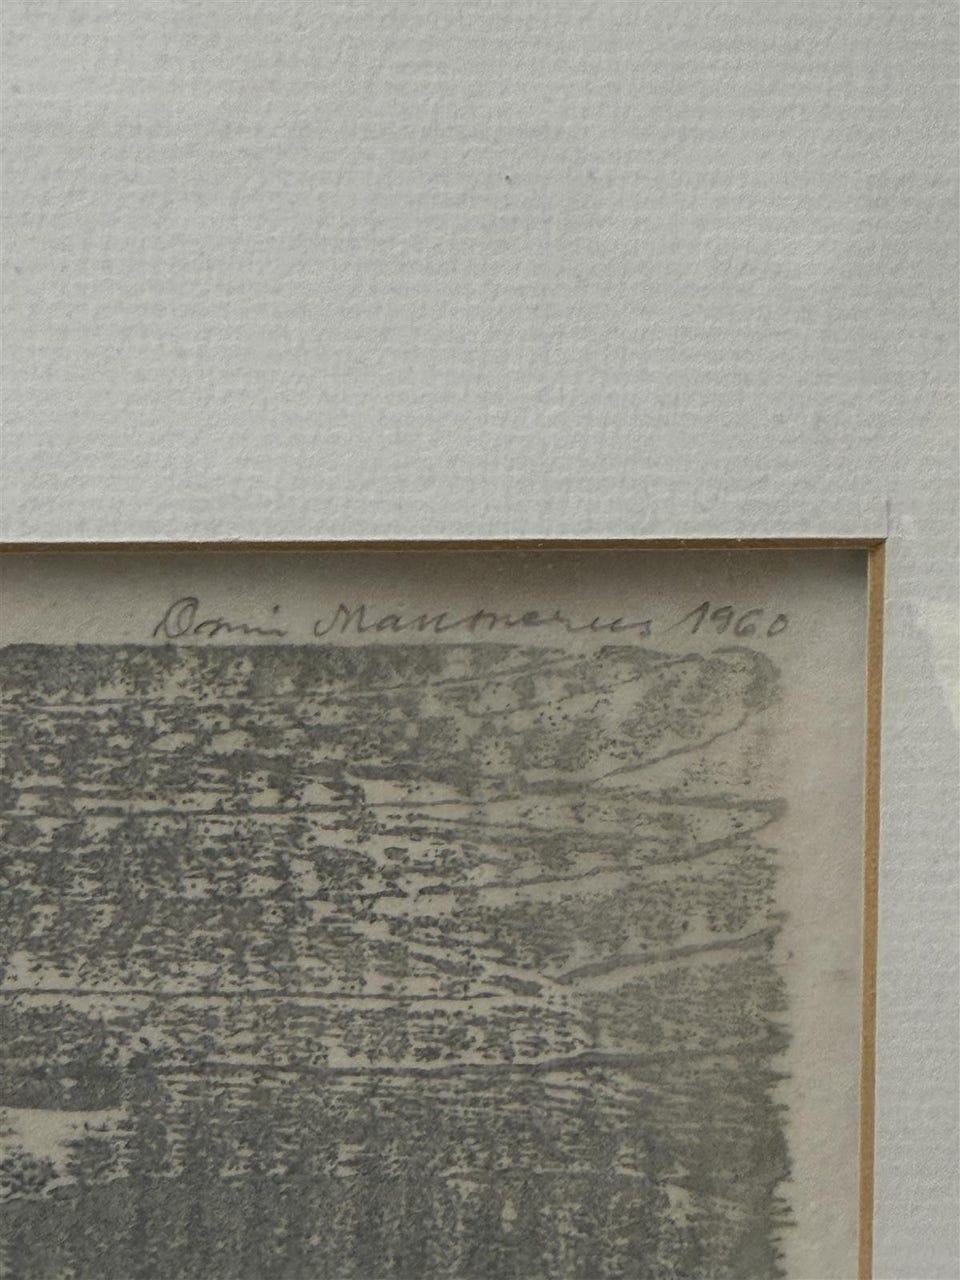 Onni Mansnerus 1960